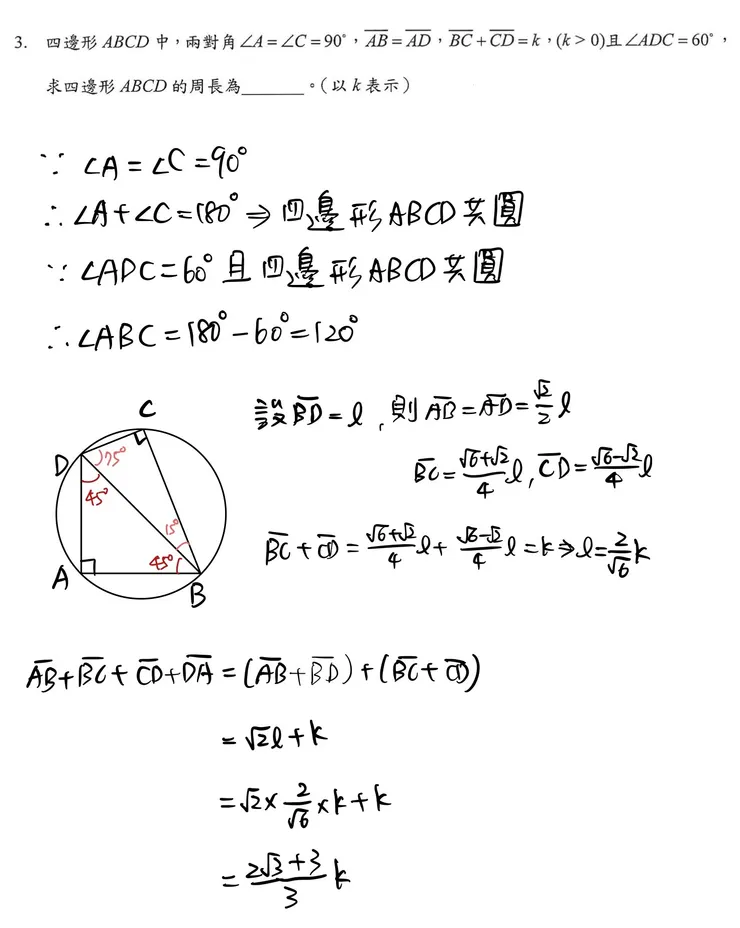 3. 四邊形 ABCD 中，兩對角∠A=∠C=90°，\overline{AB}=\overline{AD}，\overline{BC}+\overline{CD}=k，(k>0)且∠ADC=60°，
求四邊形 ABCD 的周長為______。(以 k 表示)
∵ ∠A=∠C=90°
∴ ∠A+∠C=180° ⇒ 四邊形 ABCD 共圓
∵ ∠ADC=60° 且 四邊形 ABCD 共圓
∴ ∠ABC=180°-60°=120°
C
D
75°
45°
15°
45°
A
B
設 \overline{BD}=l，則 \overline{AB}=\overline{AD}=\frac{\sqrt{2}}{2}l
\overline{BC}=\frac{\sqrt{6}+\sqrt{2}}{4}l, \overline{CD}=\frac{\sqrt{6}-\sqrt{2}}{4}l
\overline{BC}+\overline{CD}=\frac{\sqrt{6}+\sqrt{2}}{4}l+\frac{\sqrt{6}-\sqrt{2}}{4}l=k⇒l=\frac{2}{\sqrt{6}}k
\overline{AB}+\overline{BC}+\overline{CD}+\overline{DA}=(\overline{AB}+\overline{BD})+(\overline{BC}+\overline{CD})
=\sqrt{2}l+k
=\sqrt{2}×\frac{2}{\sqrt{6}}×k+k
=\frac{2\sqrt{3}+3}{3}k